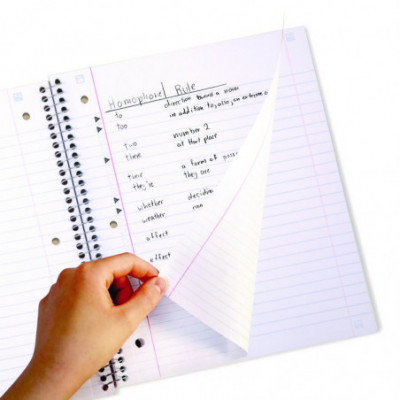 Homophone/ Rule
to direction toward a noun
too in addition to, also, an extreme
two number 2
there at that place
their a form of
they're they are
whether decidin
weather
affect
effect